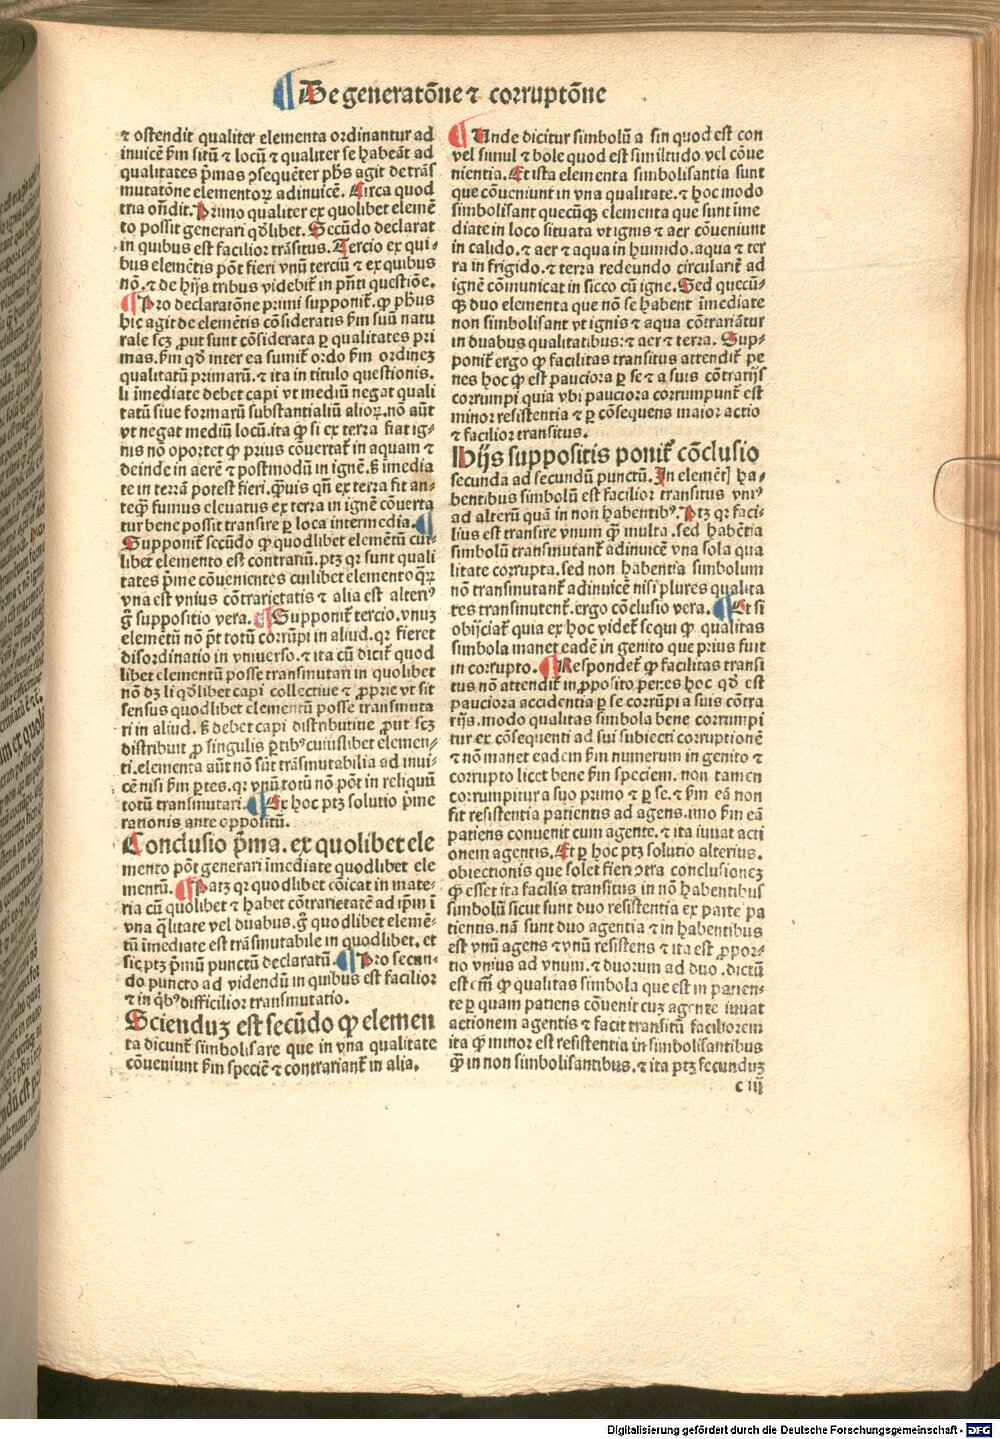 De generatõne ⁊ corruptõne
⁊ ostendit qualiter elementa ordinantur ad
inuicẽ ẜm sitũ ⁊ locũ ⁊ qualiter se habeãt ad
qualitates p̃mas ꝯsequẽter ph̃s agit de trãs
mutatõne elementoꝝ adinuicẽ. Circa quod
tria oñdit. Primo qualiter ex quolibet elemẽ
to possit generari qd̃libet. Secũdo declarat
in quibus est facilior trãsitus. Tercio ex qui-
bus elemẽtis põt fieri vnũ terciũ ⁊ ex quibus
nõ. ⁊ de hijs tribus videbit̃ in pñti questiõe.
Pro declaratõne primi supponit̃. ꝙ ph̃us
hic agit de elemẽtis cõsideratis ẜm suũ natu
rale scꝫ ꝓut sunt cõsiderata ꝑ qualitates pri
mas. ẜm qd̃ inter ea sumit̃ ordo ẜm ordineꝫ
qualitatũ primarũ. ⁊ ita in titulo questionis.
li ĩmediate debet capi vt mediũ negat quali
tatũ siue formarũ substantialiũ alioꝝ. nõ aũt
vt negat mediũ locũ. ita ꝙ si ex terra fiat ig-
nis nõ oportet ꝙ prius cõuertat̃ in aquam ⁊
deinde in aerẽ ⁊ postmodũ in ignẽ. ß ĩmedia
te in terrã potest fieri. ꝙuis qñ ex terra fit an-
teꝙ̃ fumus eleuatus ex terra in ignẽ cõuerta
tur bene possit transire ꝑ loca intermedia.
Supponit̃ secũdo ꝙ quodlibet elementũ cui-
libet elemento est contrariũ. ptꝫ qꝛ sunt quali
tates p̃me cõuenientes cuilibet elemento qꝝ
vna est vnius cõtrarietatis ⁊ alia est alteriꝰ
g̃ suppositio vera. Supponit̃ tercio. vnuꝫ
elemẽtũ nõ p̃t totũ corrũpi in aliud. qꝛ fieret
disordinatio in vniuerso. ⁊ ita cũ dicit̃ quod
libet elementũ posse transmutari in quolibet
nõ dꝫ li qd̃libet capi collectiue ⁊ ꝓprie vt sit
sensus quodlibet elementũ posse transmuta
ri in aliud. ß debet capi distributiue ꝓut scꝫ
distribuit ꝓ singulis ꝑtibꝰ cuiuslibet elemen-
ti. elementa aũt nõ sũt trãsmutabilia ad inui-
cẽ nisi ẜm ꝑtes. qꝛ vnũ totũ nõ põt in reliquũ
totũ transmutari. Ex hoc ptꝫ solutio p̃me
rationis ante oppositũ.
Conclusio p̃ma. ex quolibet ele
mento põt generari ĩmediate quodlibet ele
mentũ. Patꝫ qꝛ quodlibet cõicat in mate-
ria cũ quolibet ⁊ habet cõtrarietatẽ ad ip̃m ĩ
vna q̃litate vel duabus. g̃ quodlibet elemẽ-
tũ ĩmediate est trãsmutabile in quodlibet. et
sic ptꝫ p̃mũ punctũ declaratũ. Pro secun-
do puncto ad videndũ in quibus est facilior
⁊ in qb̃ꝰ difficilior transmutatio.
Scienduꝫ est secũdo ꝙ elemen
ta dicunt̃ simbolisare que in vna qualitate
cõueniunt ẜm speciẽ ⁊ contrariant̃ in alia.
Unde dicitur simbolũ a sin quod est con
vel simul ⁊ bole quod est similtudo vel cõue
nientia. Et ista elementa simbolisantia sunt
que cõueniunt in vna qualitate. ⁊ hoc modo
simbolisant quecũqꝫ elementa que sunt ĩme
diate in loco situata vt ignis ⁊ aer cõueniunt
in calido. ⁊ aer ⁊ aqua in humido. aqua ⁊ ter
ra in frigido. ⁊ terra redeundo circularit̃ ad
ignẽ cõmunicat in sicco cũ igne. Sed quecũ-
qꝫ duo elementa que nõ se habent ĩmediate
non simbolisant vt ignis ⁊ aqua cõtrariãtur
in duabus qualitatibus: ⁊ aer ⁊ terra. Sup-
ponit̃ ergo ꝙ facilitas transitus attendit̃ pe
nes hoc ꝙ est pauciora ꝑ se ⁊ a suis cõtrarijs
corrumpi quia vbi pauciora corrumpunt̃ est
minor resistentia ⁊ ꝑ cõsequens maior actio
⁊ facilior transitus.
Hijs suppositis ponit̃ cõclusio
secunda ad secundũ punctũ. In elemẽtꝭ ha-
bentibus simbolũ est facilior transitus vniꝰ
ad alterũ quã in non habentibꝰ. Ptꝫ qꝛ faci-
lius est transire vnum ꝙ̃ multa. sed habẽtia
simbolũ transmutant̃ adinuicẽ vna sola qua
litate corrupta. sed non habentia simbolum
nõ transmutant̃ adinuicẽ nisi plures qualita
tes transmutent̃. ergo cõclusio vera. Et si
obijciat̃ quia ex hoc videt̃ sequi ꝙ qualitas
simbola manet eadẽ in genito que prius fuit
in corrupto. Respondet̃ ꝙ facilitas transi
tus nõ attendit̃ in ꝓposito penes hoc qd̃ est
pauciora accidentia ꝑ se corrũpi a suis cõtra
rijs. modo qualitas simbola bene corrumpi
tur ex cõsequenti ad sui subiecti corruptionẽ
⁊ nõ manet eadem ẜm numerum in genito ⁊
corrupto licet bene ẜm speciem. non tamen
corrumpitur a suo primo ⁊ ꝑ se. ⁊ ẜm eã non
fit resistentia patientis ad agens. imo ẜm eã
patiens conuenit cum agente. ⁊ ita iuuat acti
onem agentis. Et ꝑ hoc ptꝫ solutio alterius.
obiectionis que solet fieri ꝯtra conclusioneꝫ
ꝙ esset ita facilis transitus in nõ habentibus
simbolũ sicut sunt duo resistentia ex parte pa
tientis. nã sunt duo agentia ⁊ in habentibus
est vnũ agens ⁊ vnũ resistens ⁊ ita est ꝓpor-
tio vnius ad vnum. ⁊ duorum ad duo. dictũ
est em̃ ꝙ qualitas simbola que est in patien-
te ꝑ quam patiens cõuenit cuꝫ agente iuuat
actionem agentis ⁊ facit transitũ faciliorem
ita ꝙ minor est resistentia in simbolisantibus
ꝙ̃ in non simbolisantibus. ⁊ ita ptꝫ secunduꝫ
c iij
Digitalisierung gefördert durch die Deutsche Forschungsgemeinschaft - DFG